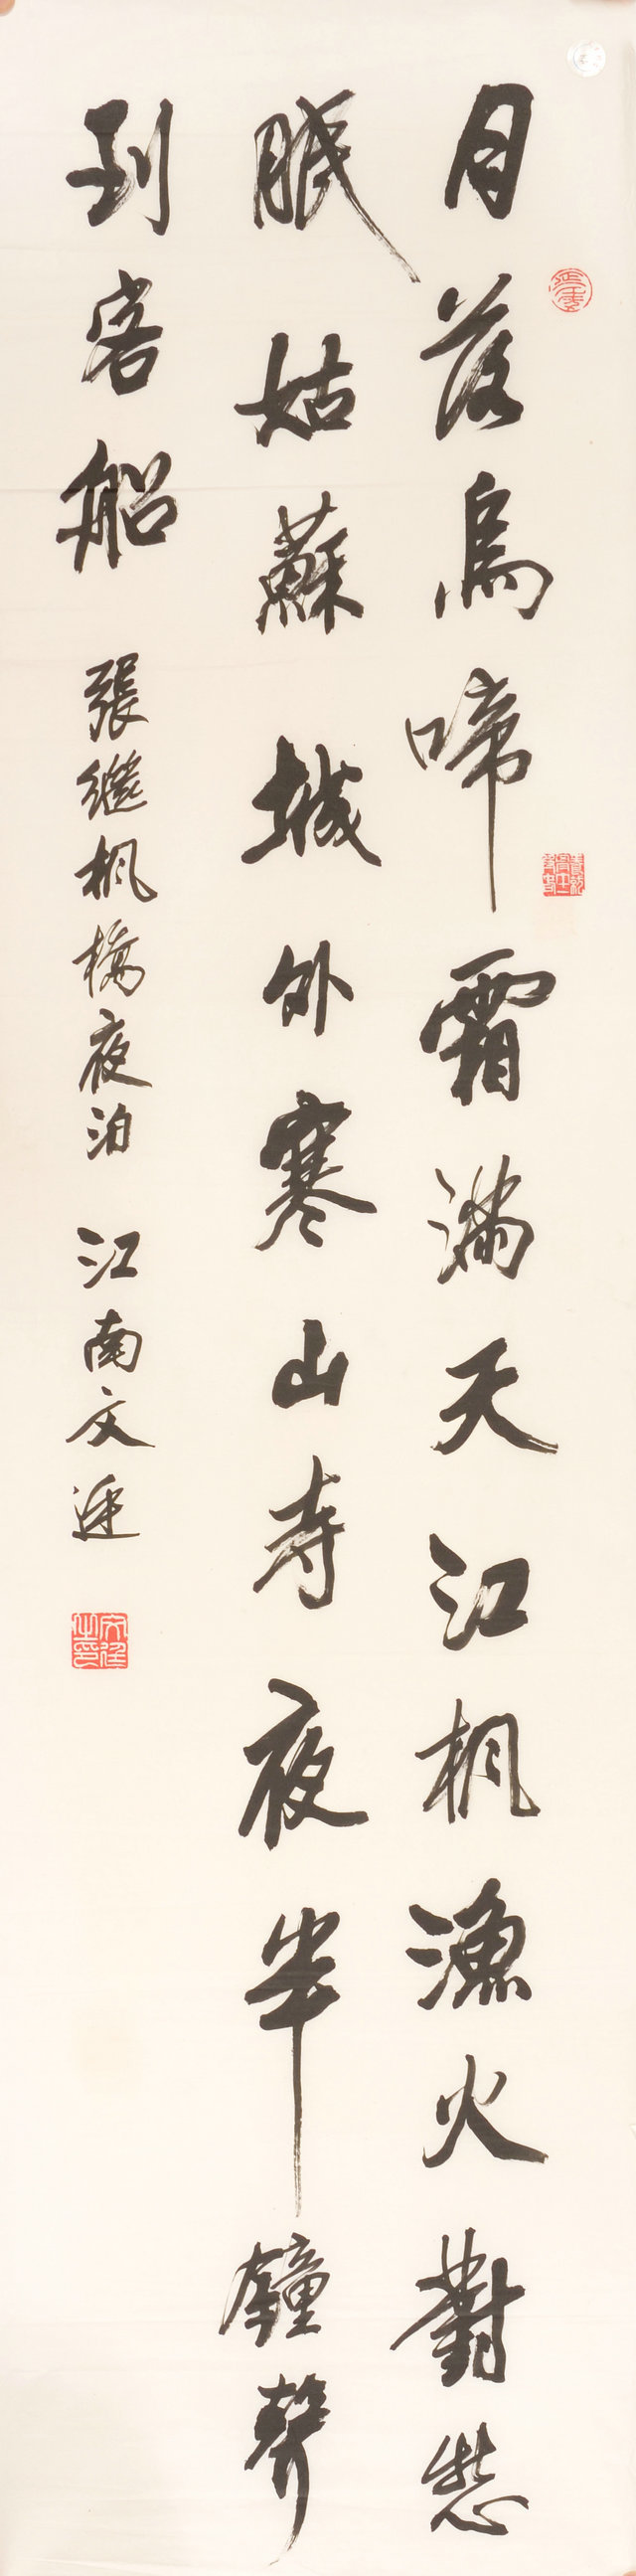 月落烏啼霜滿天江楓漁火對愁
眠姑蘇城外寒山寺夜半鐘聲
到客船
張繼楓橋夜泊 江南文